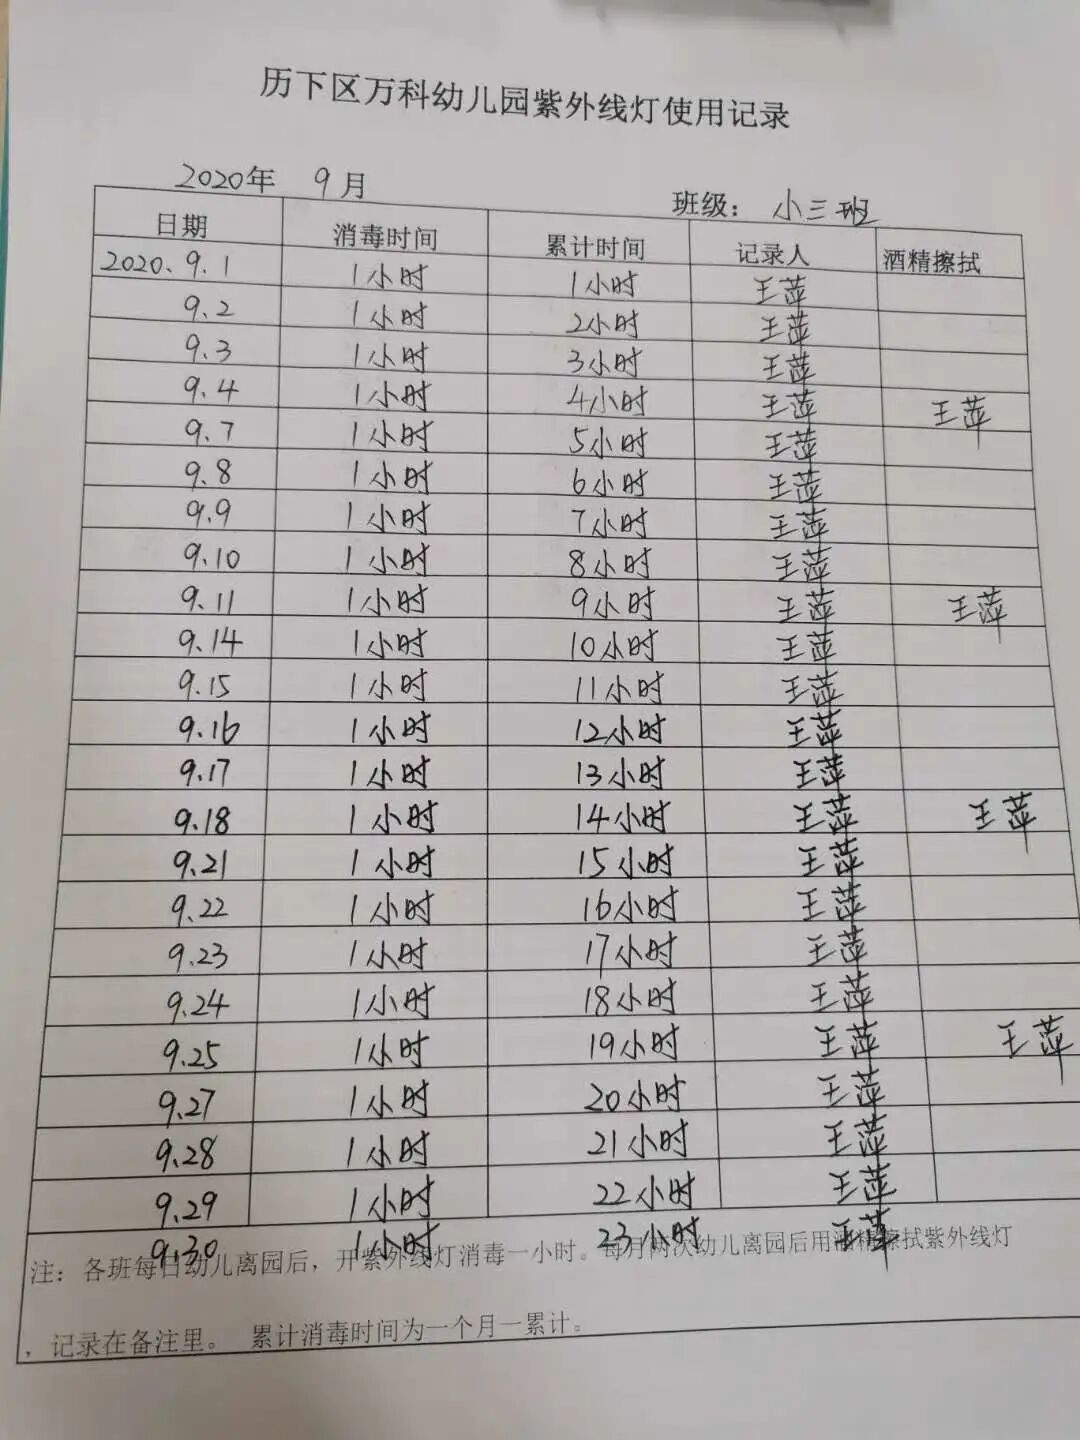 历下区万科幼儿园紫外线灯使用记录
2020年 9月 班级： 小三班
日期 消毒时间 累计时间 记录人 酒精擦拭
2020、9.1 1小时 1小时 王萍
9.2 1小时 2小时 王萍
9.3 1小时 3小时 王萍
9.4 1小时 4小时 王萍 王萍
9.7 1小时 5小时 王萍
9.8 1小时 6小时 王萍
9.9 1小时 7小时 王萍
9.10 1小时 8小时 王萍
9.11 1小时 9小时 王萍 王萍
9.14 1小时 10小时 王萍
9.15 1小时 11小时 王萍
9.16 1小时 12小时 王萍
9.17 1小时 13小时 王萍
9.18 1小时 14小时 王萍 王萍
9.21 1小时 15小时 王萍
9.22 1小时 16小时 王萍
9.23 1小时 17小时 王萍
9.24 1小时 18小时 王萍
9.25 1小时 19小时 王萍 王萍
9.27 1小时 20小时 王萍
9.28 1小时 21小时 王萍
9.29 1小时 22小时 王萍
9.30 1小时 23小时 王萍
注：各班每日幼儿离园后，开紫外线灯消毒一小时。每月两次幼儿离园后用酒精擦拭紫外线灯
，记录在备注里。 累计消毒时间为一个月一累计。